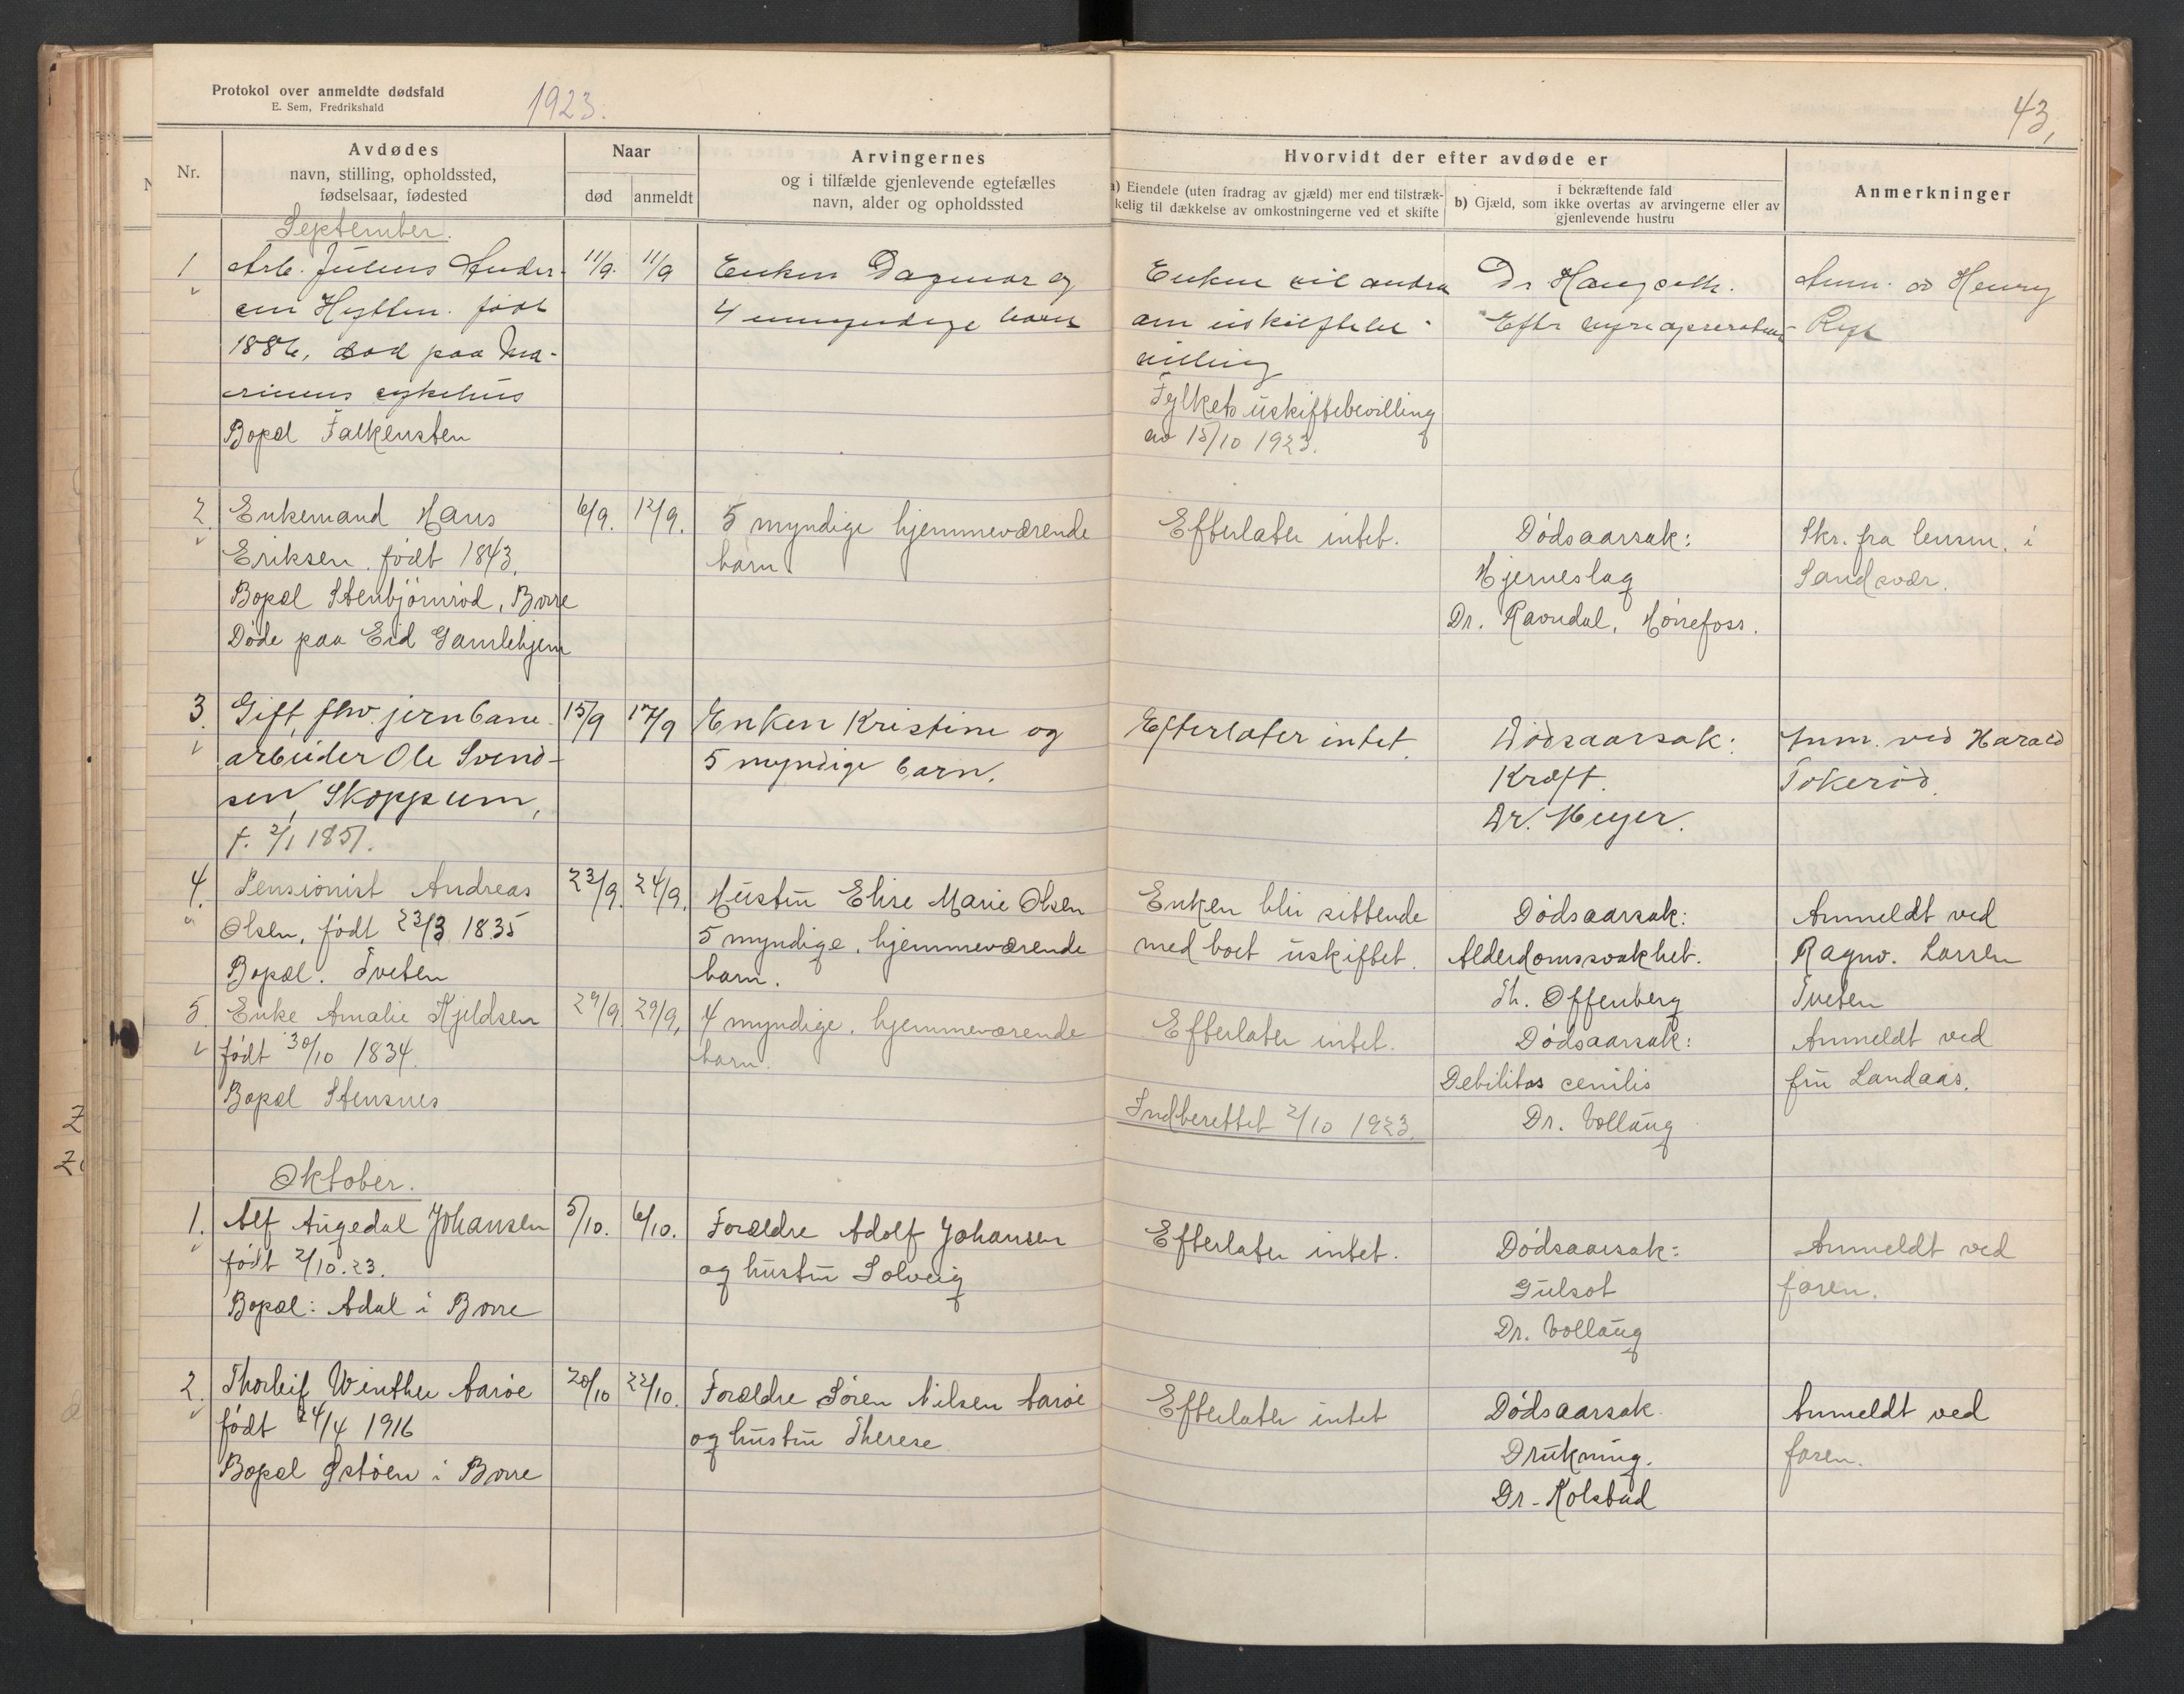 Protokol over anmeldte dødsfald
E. Sem, Fredrikshald
1923.
43,
Nr.
Avdødes
navn, stilling, opholdssted,
fødselsaar, fødested
Naar
død
anmeldt
Arvingernes
og i tilfælde gjenlevende egtefælles
navn, alder og opholdssted
Hvorvidt der efter avdøde er
a) Eiendele (uten fradrag av gjæld) mer end tilstræk-
kelig til dækkelse av omkostningerne ved et skifte
i bekræftende fald
b) Gjæld, som ikke overtas av arvingerne eller av
gjenlevende hustru
Anmerkninger
September.
1
Arb. Julius Ander-
sen Hytten. født
1886, død paa Ma-
rinens sykehus
Bopæl Falkensten
11/9. 11/9
Enken Dagmar og
4 umyndige barn
Enken vil andra
om uskiftebe-
villing
Fylkets uskiftebevilling
av 15/10 1923.
Dr
Efter
Anm. av Henry
2.
Enkemand Hans
Eriksen. født 1843.
Bopæl Stenbjörnröd, Borre
Døde paa Eid Gamlehjem
6/9. 12/9.
5 myndige hjemmeværende
barn.
Efterlater intet.
Dødsaarsak:
Hjerneslag
Dr. Ravndal, Hønefoss.
Skr. fra lensm. i
Sandsvær.
3.
Gift, fhv. jernbane-
arbeider Ole Svend-
sen, Skoppum,
f. 2/1 1851.
15/9 17/9
Enken Kristine og
5 myndige barn.
Efterlater intet.
Dødsaarsak:
Kræft.
Dr. Meyer.
Anm. ved Harald
Tokerød.
4.
Pensionist Andreas
Olsen, født 23/3 1835
Bopæl. Tveten
23/9. 24/9.
Hustru Elise Marie Olsen
5 myndige, hjemmeværende
barn.
Enken blir sittende
med boet uskiftet.
Dødsaarsak:
Alderdomssvakhet.
Th. Offenberg
Anmeldt ved
Ragnv. Larsen
Tveten
5.
Enke Amalie Kjeldsen
født 30/10 1834.
Bopæl Stensnes
29/9. 29/9.
4 myndige, hjemmeværende
barn.
Efterlater intet.
Indberettet 2/10 1923.
Dødsaarsak:
Debilitas cenilis
Dr. Vollaug
Anmeldt ved
fru Landaas.
Oktober.
1.
Alf Augedal Johansen
født 2/10.23.
Bopæl: Adal i Borre
5/10. 6/10.
Forældre Adolf Johansen
og hustru Solveig
Efterlater intet.
Dødsaarsak:
Gulsot
Dr. Vollaug
Anmeldt ved
faren.
2.
Thorleif Winther Aarøe
født 24/4 1916
Bopæl Østøen i Borre
20/10 22/10.
Forældre Søren Nilsen Aarøe
og hustru Therese
Efterlater intet
Dødsaarsak.
Drukning.
Dr. Kolstad
Anmeldt ved
faren.